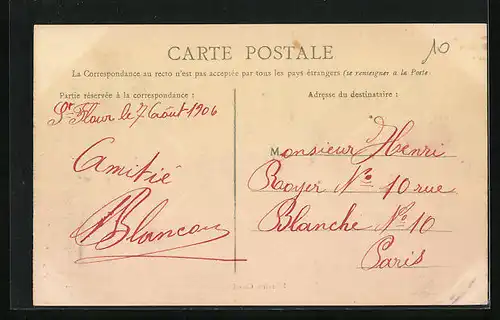 10
CARTE POSTALE
La Correspondance au recto n'est pas acceptée par tous les pays étrangers (se renseigner a la Poste
Partie réservée à la correspondance :
Adresse du destinataire :
St Flour le 7 Août 1906
Monsieur Henri
Amitié
Royer No 10 rue
Blanche No 10
Paris